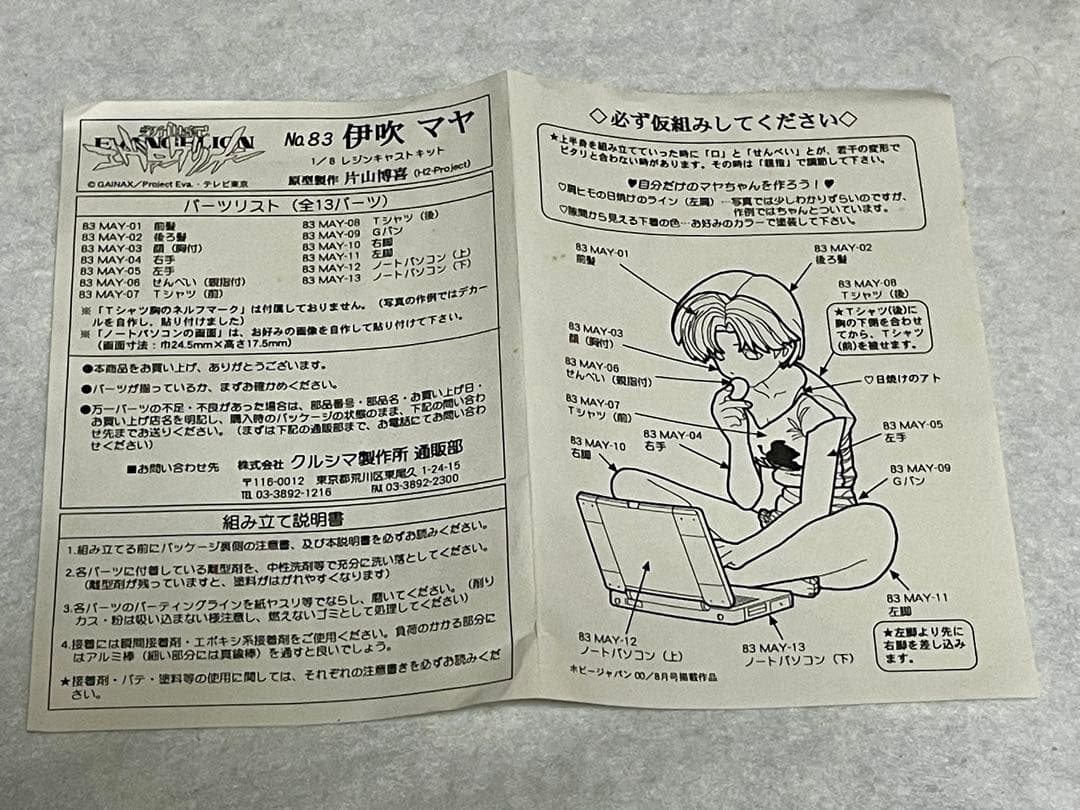 新世紀
EVANGELION
エヴァンゲリオン
No.83 伊吹 マヤ
1/8 レジンキャストキット
© GAINAX/Project Eva.・テレビ東京
原型製作 片山博喜 (H2-Project)
パーツリスト (全13パーツ)
83 MAY-01 前髪
83 MAY-02 後ろ髪
83 MAY-03 顔 (胸付)
83 MAY-04 右手
83 MAY-05 左手
83 MAY-06 せんべい (親指付)
83 MAY-07 Tシャツ (前)
83 MAY-08 Tシャツ (後)
83 MAY-09 Gパン
83 MAY-10 右脚
83 MAY-11 左脚
83 MAY-12 ノートパソコン (上)
83 MAY-13 ノートパソコン (下)
※「Tシャツ胸のネルフマーク」は付属しておりません。(写真の作例ではデカー
ルを自作し、貼り付けました)
※「ノートパソコンの画面」は、お好みの画像を自作して貼り付けて下さい。
(画面寸法:巾24.5mm×高さ17.5mm)
●本商品をお買い上げ、ありがとうございます。
●パーツが揃っているか、まずお確かめください。
●万一パーツの不足・不良があった場合は、部品番号・部品名・お買い上げ日・
お買い上げ店名を明記し、購入時のパッケージの状態のまま、下記の問い合わ
せ先までお送りください。(まずは下記の通販部まで、お電話にてお問い合わ
せください)
■お問い合わせ先 株式会社 クルシマ製作所 通販部
〒116-0012 東京都荒川区東尾久 1-24-15
TEL 03-3892-1216 FAX 03-3892-2300
組み立て説明書
1.組み立てる前にパッケージ裏側の注意書、及び本説明書を必ずお読みください。
2.各パーツに付着している離型剤を、中性洗剤等で充分に洗い落としてください。
(離型剤が残っていますと、塗料がはがれやすくなります)
3.各パーツのパーティングラインを紙ヤスリ等でならし、磨いてください。(削り
カス・粉は吸い込まない様注意し、燃えないゴミとして処理してください)
4.接着には瞬間接着剤・エポキシ系接着剤をご使用ください。負荷のかかる部分に
はアルミ棒 (細い部分には真鍮棒) を通すと良いでしょう。
★接着剤・パテ・塗料等の使用に関しては、それぞれの注意書きを必ずお読みくだ
さい。
◇必ず仮組みしてください◇
★上半身を組み立てていった時に「口」と「せんべい」とが、若干の変形で
ピタリと合わない時があります。その時は「親指」で調節して下さい。
♥自分だけのマヤちゃんを作ろう!♥
♡肩ヒモの日焼けのライン (左肩) …写真では少しわかりずらいのですが、
作例ではちゃんとついています。
♡隙間から見える下着の色…お好みのカラーで塗装して下さい。
83 MAY-01
前髪
83 MAY-02
後ろ髪
83 MAY-08
Tシャツ (後)
★Tシャツ(後)に
胸の下側を合わせ
てから、Tシャツ
(前)を被せます。
83 MAY-03
顔 (胸付)
83 MAY-06
せんべい (親指付)
♡日焼けのアト
83 MAY-07
Tシャツ (前)
83 MAY-04
右手
83 MAY-05
左手
83 MAY-10
右脚
83 MAY-09
Gパン
83 MAY-11
左脚
83 MAY-12
ノートパソコン (上)
83 MAY-13
ノートパソコン (下)
★左脚より先に
右脚を差し込み
ます。
ホビージャパン 00/8月号掲載作品